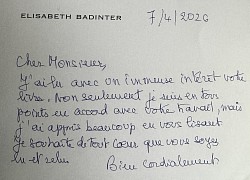 ELISABETH BADINTER
7/4/2026
Cher Monsieur,
J'ai lu avec un immense intérêt votre
livre. Non seulement je suis en tous
points en accord avec votre travail, mais
j'ai appris beaucoup en vous lisant
Je souhaite de tout cœur que vous soyez
lu et relu.
Bien cordialement